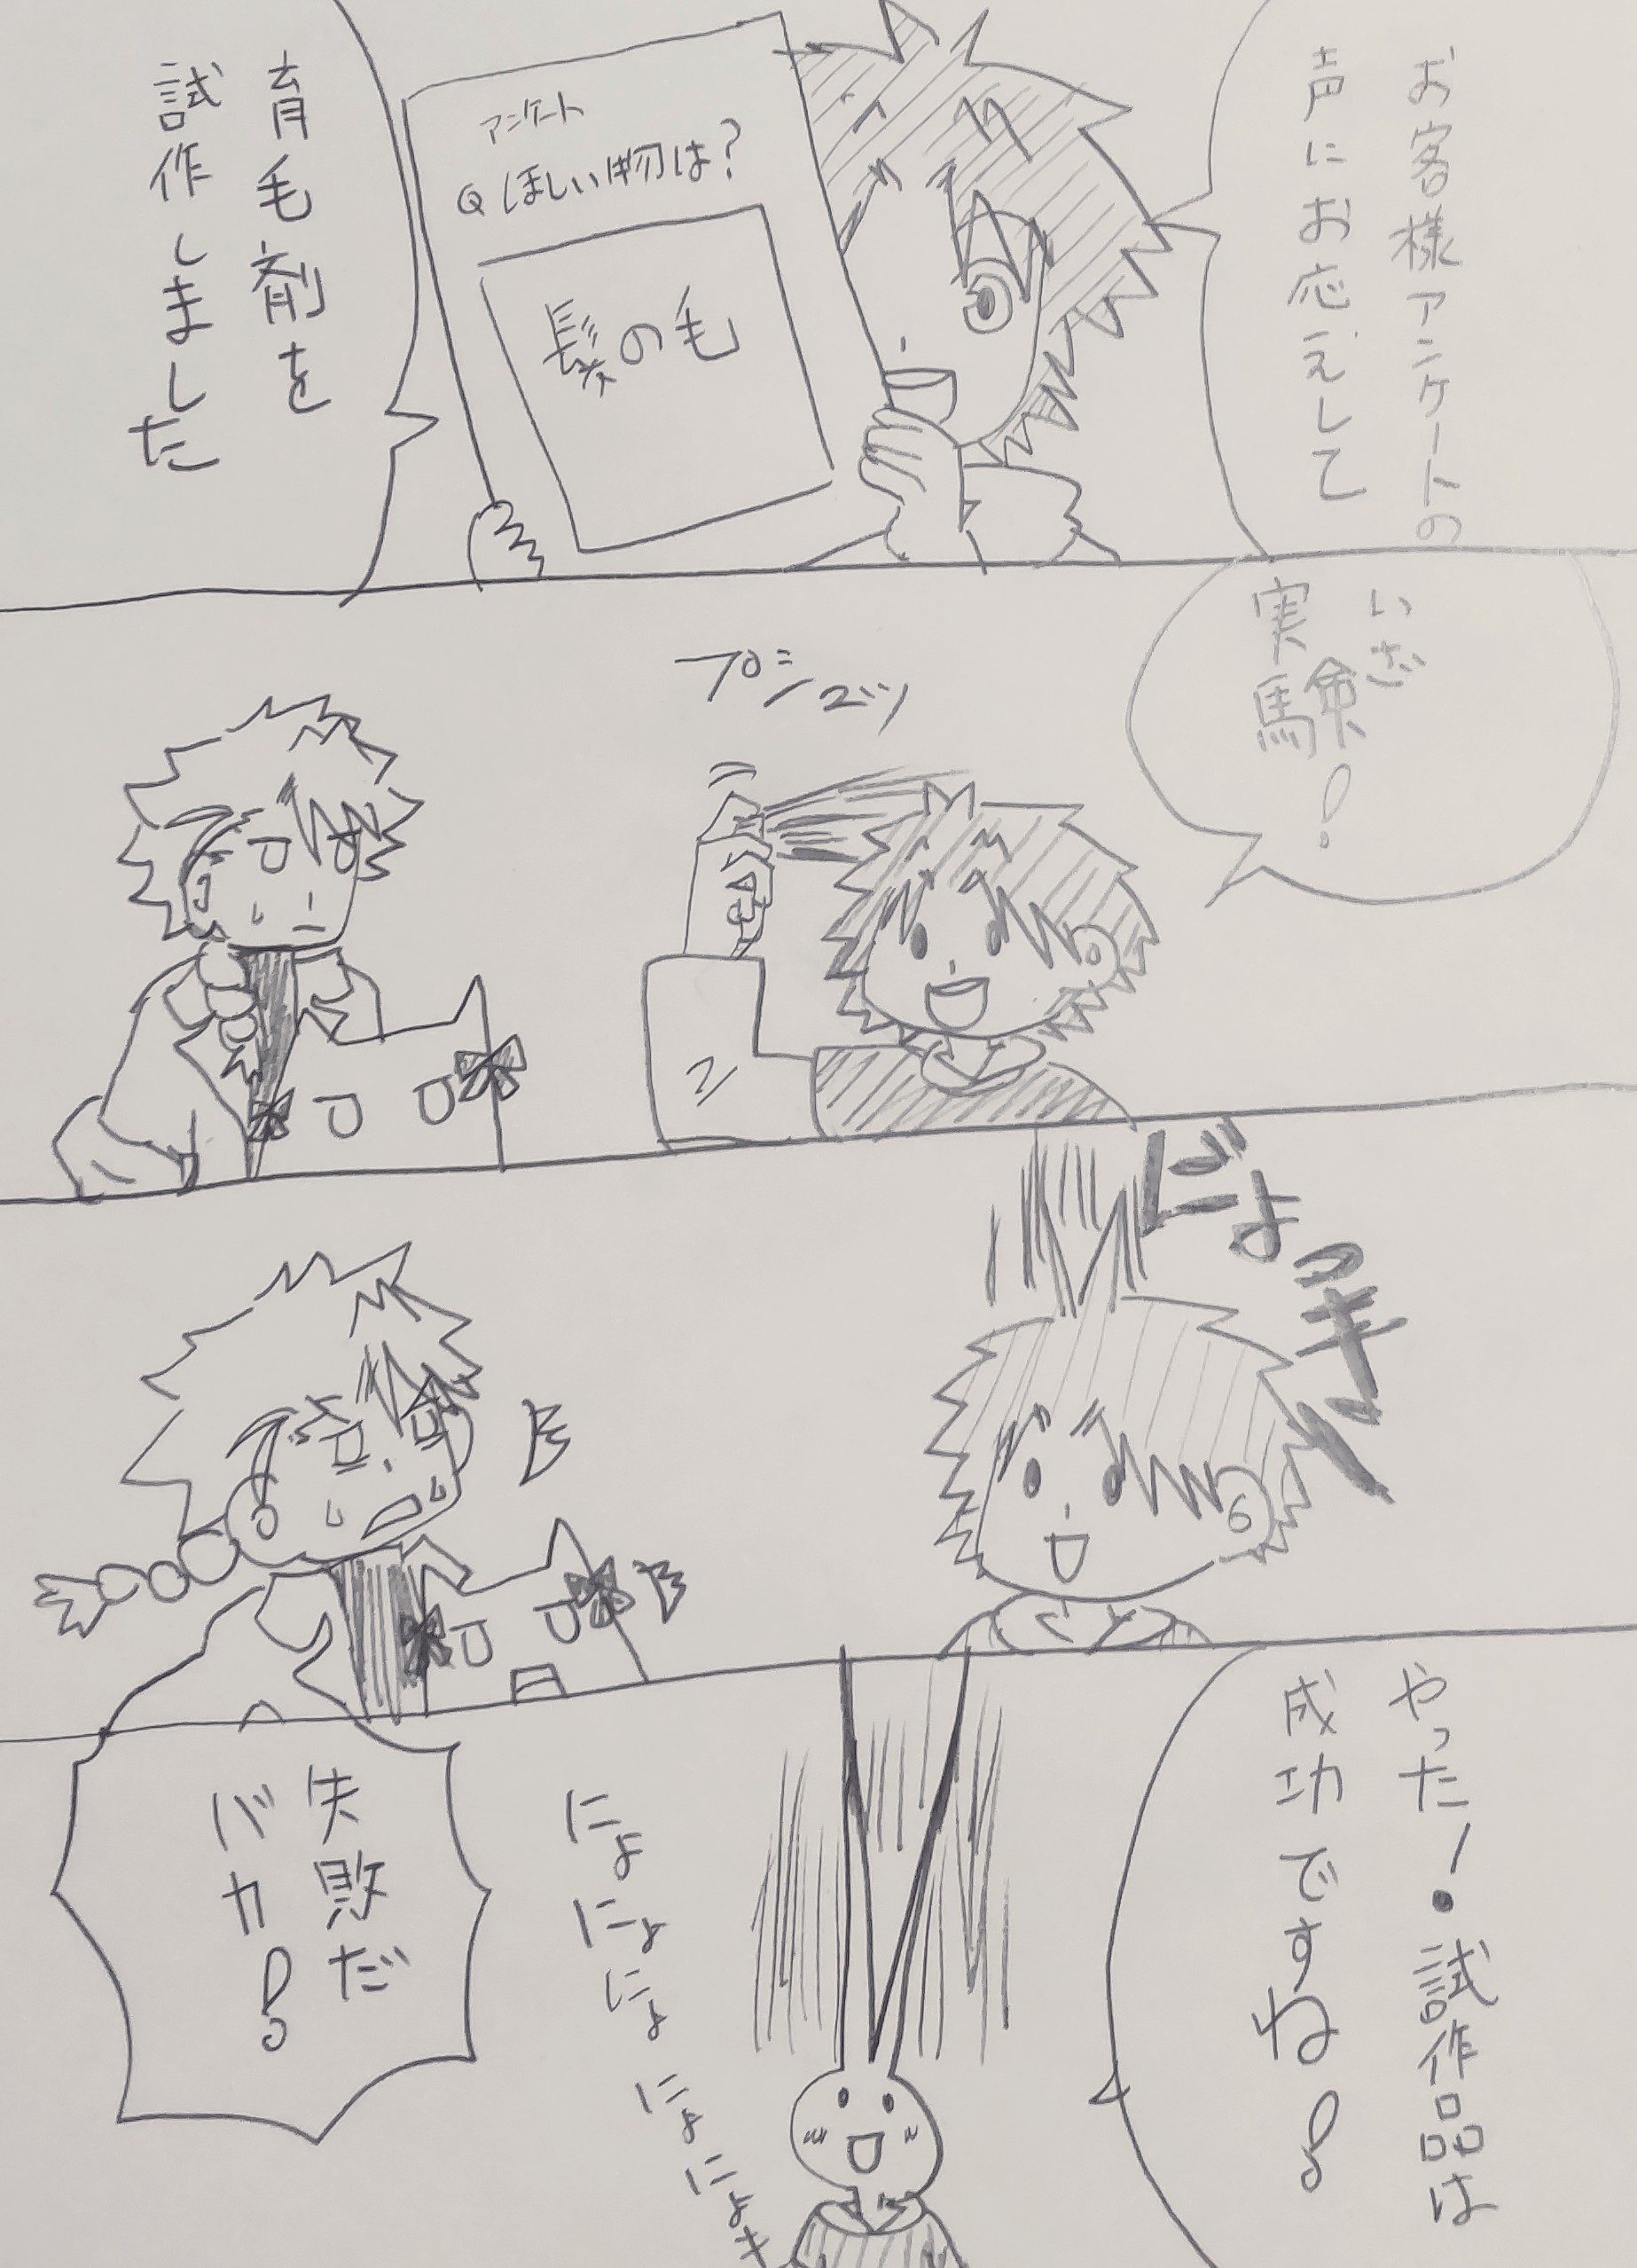 お客様アンケートの
声にお応えして
アンケート
Qほしい物は?
髪の毛
育毛剤を
試作しました
いざ
実験!
プシュッ
にょっキ
やった!試作品は
成功ですね!
にょにょにょにょにょキ
失敗だ
バカ!